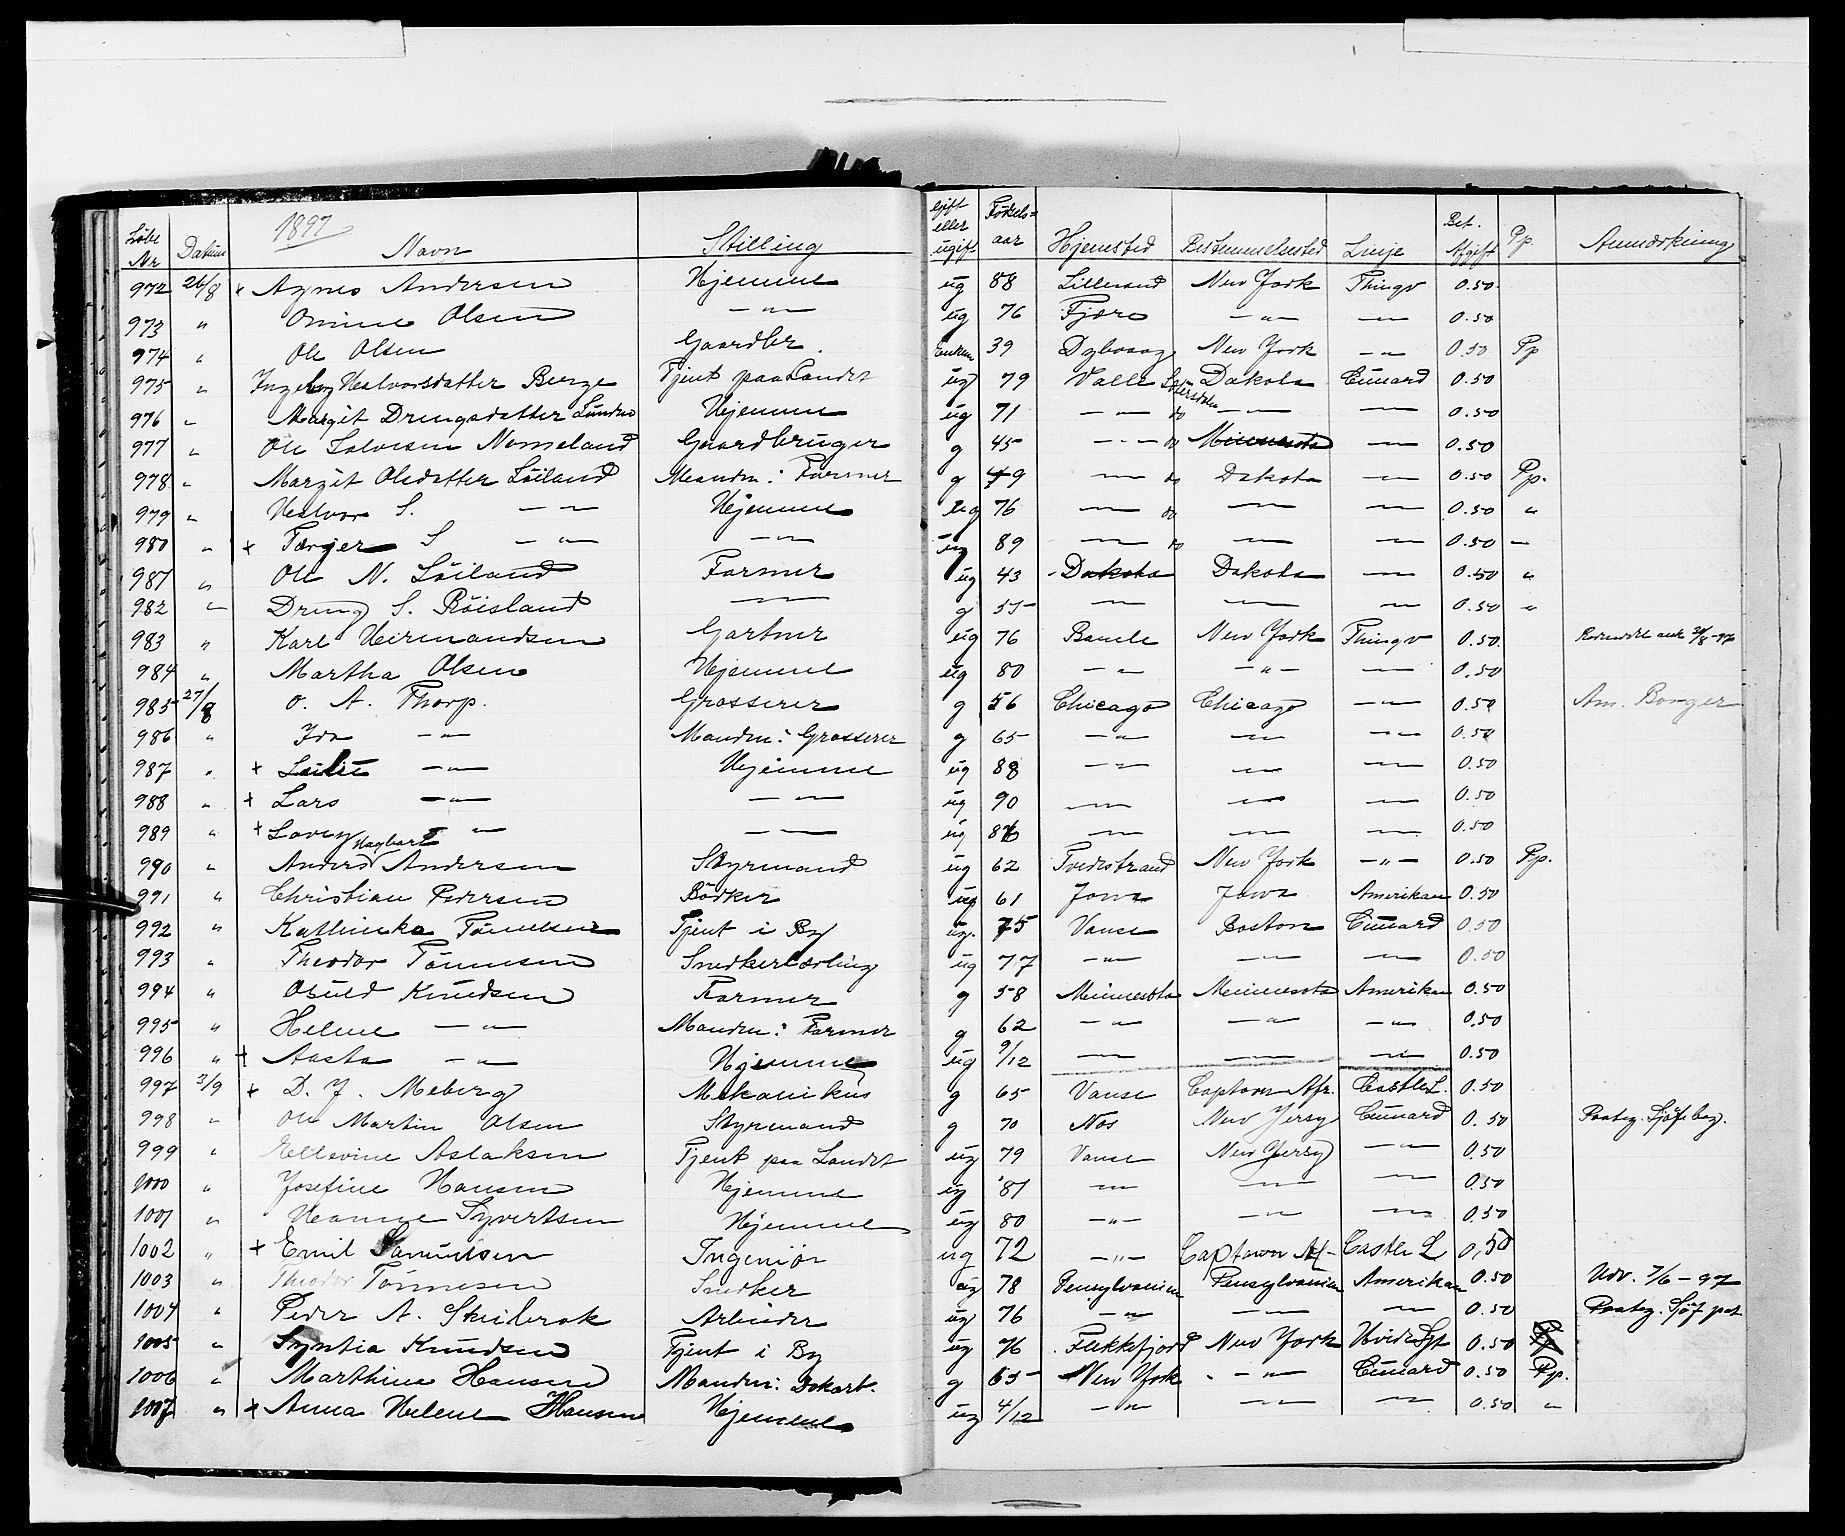 1897
Løbe Nr | Datum | Navn | Stilling | Gift eller ugift | Fødels= aar | Hjemsted | Bestemmelsested | Linje | Bet. Afgift | Pp. | Anmærkning
972 26/8 + Agnes Andersen Hjemme ug 88 Lillesand New York Thingv 0.50
973 " Olsen —"— ug 76 Fjære —"— —"— 0.50
974 " Ole Olsen Gaardbr. Enkem 39 Dybvaag New York —"— 0.50 Pp
975 " Ingeborg Halvorsdatter Berge Tjent paa Landet ug 79 Valle Sætersdalen Dakota Cunard 0.50
976 " Margit Drengsdatter Hjemme ug 71 —"— do —"— —"— 0.50
977 " Ole Salvesen Nomeland Gaardbruger g 45 —"— do Minnesota —"— 0.50
978 " Margit Olsdatter Løiland Manden: Farmer g 49 —"— do Dakota —"— 0.50 Pp.
979 " Halvor S. —"— Hjemme ug 76 —"— do —"— —"— 0.50 "
980 " + Tarjer S —"— —"— ug 89 —"— do —"— —"— 0.50 "
981 " Ole N. Løiland Farmer ug 43 Dakota Dakota —"— 0.50 "
982 " Dreng S. Røisland —"— g 55 —"— —"— —"— 0.50 "
983 " Karl Hermandsen Gartner ug 76 Bamle New York Thingv 0.50
984 " Martha Olsen Hjemme ug 80 —"— —"— —"— 0.50
985 27/8 O. A. Thorp. Grosserer g 56 Chicago Chicago —"— 0.50 Am. Borger
986 " Ida —"— Manden: Grosserer g 65 —"— —"— —"— 0.50
987 " + —"— Hjemme ug 88 —"— —"— —"— 0.50
988 " + Lars —"— —"— ug 90 —"— —"— —"— 0.50
989 " + —"— —"— ug —"— —"— —"— 0.50
990 " Anders Hagbart Andersen Styrmand ug 62 Tvedestrand New York —"— 0.50 Pp.
991 " Christian Pedersen Bödker ug 61 Jowa Jowa Amerikan 0.50
992 " Kathinka Tønnesen Tjent i By ug. 75 Vanse Boston Cunard 0.50
993 " Theodor Tönnesen Snedkerlærling ug 77 —"— —"— —"— 0.50
994 " Osuld Knudsen Farmer g 58 Minnesota Minnesota Amerikan 0.50
995 " Helene —"— Manden: Farmer g 62 —"— —"— —"— 0.50
996 " + Aasta —"— Hjemme ug 9/12 —"— —"— —"— 0.50
997 3/9 + D. J. Meberg Mekanikus g 65 Vanse Captown Afr. Castle L. 0.50
998 " Ole Martin Olsen Styrmand g 70 Nes New Jersy Cunard 0.50
999 " Ellevine Aslaksen Tjent paa Landet ug 79 Vanse New Jersy —"— 0.50
1000 " Josefine Hansen Hjemme ug '81 —"— —"— —"— 0.50
1001 " Hanne Syvertsen Hjemme ug 80 —"— —"— —"— 0.50
1002 " + Emil Samuelsen Ingeniør ug 72 —"— Captown Af- Castle L 0,50
1003 " Theodor Tönnesen Snedker ug 78 Pensylvanien Pensylvanien Amerikan 0.50 Udv. 7/6 - 97
1004 " Peder A. Skeibrok Arbeider ug 76 —"— —"— —"— 0.50
1005 " Syntia Knudsen Tjent i By ug 76 Flekkefjord New York HvideSt 0.50 Pp
1006 " Marthine Hansen Manden: g 65 New York —"— Cunard 0.50 Pp.
1007 " + Anna Helene Hansen Hjemme ug 4/12 —"— —"— —"— 0.50 "